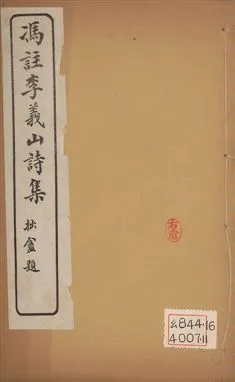 馮註李義山詩集
拙盦題
844·16
400711